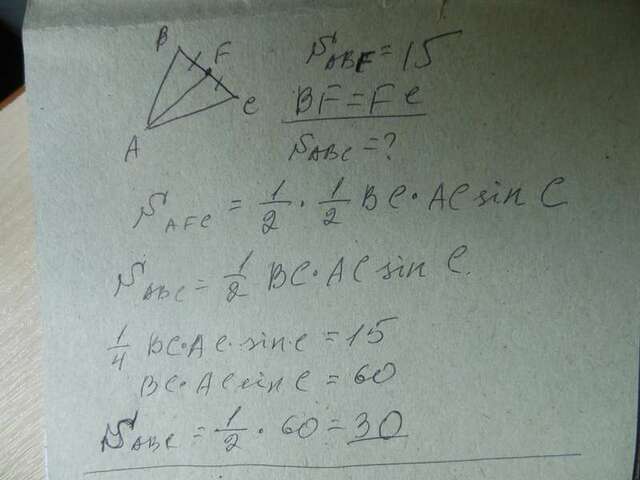 B F C A
S_ABF = 15
BF = FC
S_ABC = ?
S_AFC = 1/2 · 1/2 BC · AC sin C
S_ABC = 1/2 BC · AC sin C
1/4 BC · AC · sin C = 15
BC · AC sin C = 60
S_ABC = 1/2 · 60 = 30